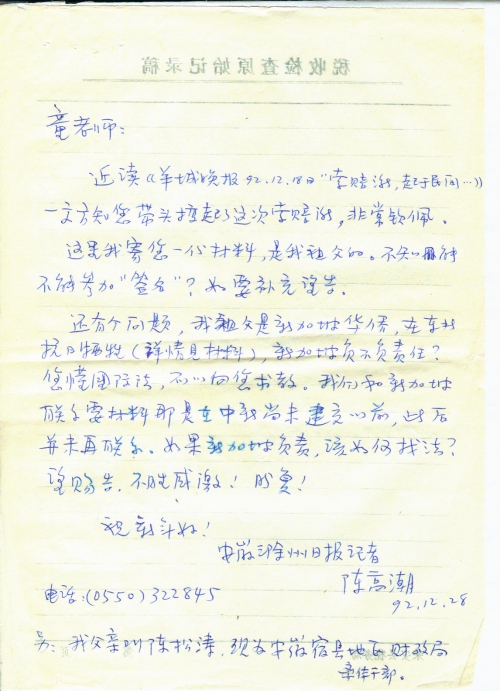 税收检查原始记录稿
童老师：
近读《羊城晚报92.12.18日"索赔潮,起于民间…》
一文方知您带头掀起了这次索赔潮,非常钦佩。
这里我寄您一份材料,是我祖父的。不知能
不能参加"签名"？如要补充望告。
还有个问题,我祖父是新加坡华侨,在东北
抗日牺牲(详情见材料),新加坡负不负责任？
您懂国际法,所以向您求教。我们和新加坡
联系要材料那是在中新尚未建交以前,此后
并未再联系。如果新加坡负责,该如何找法？
望赐告,不胜感激！盼复！
祝新年好！
安徽滁州日报记者
陈高潮
电话:(0550)322845
92.12.28
另:我父亲叫陈松涛,现为安徽宿县地区财政局
离休干部。